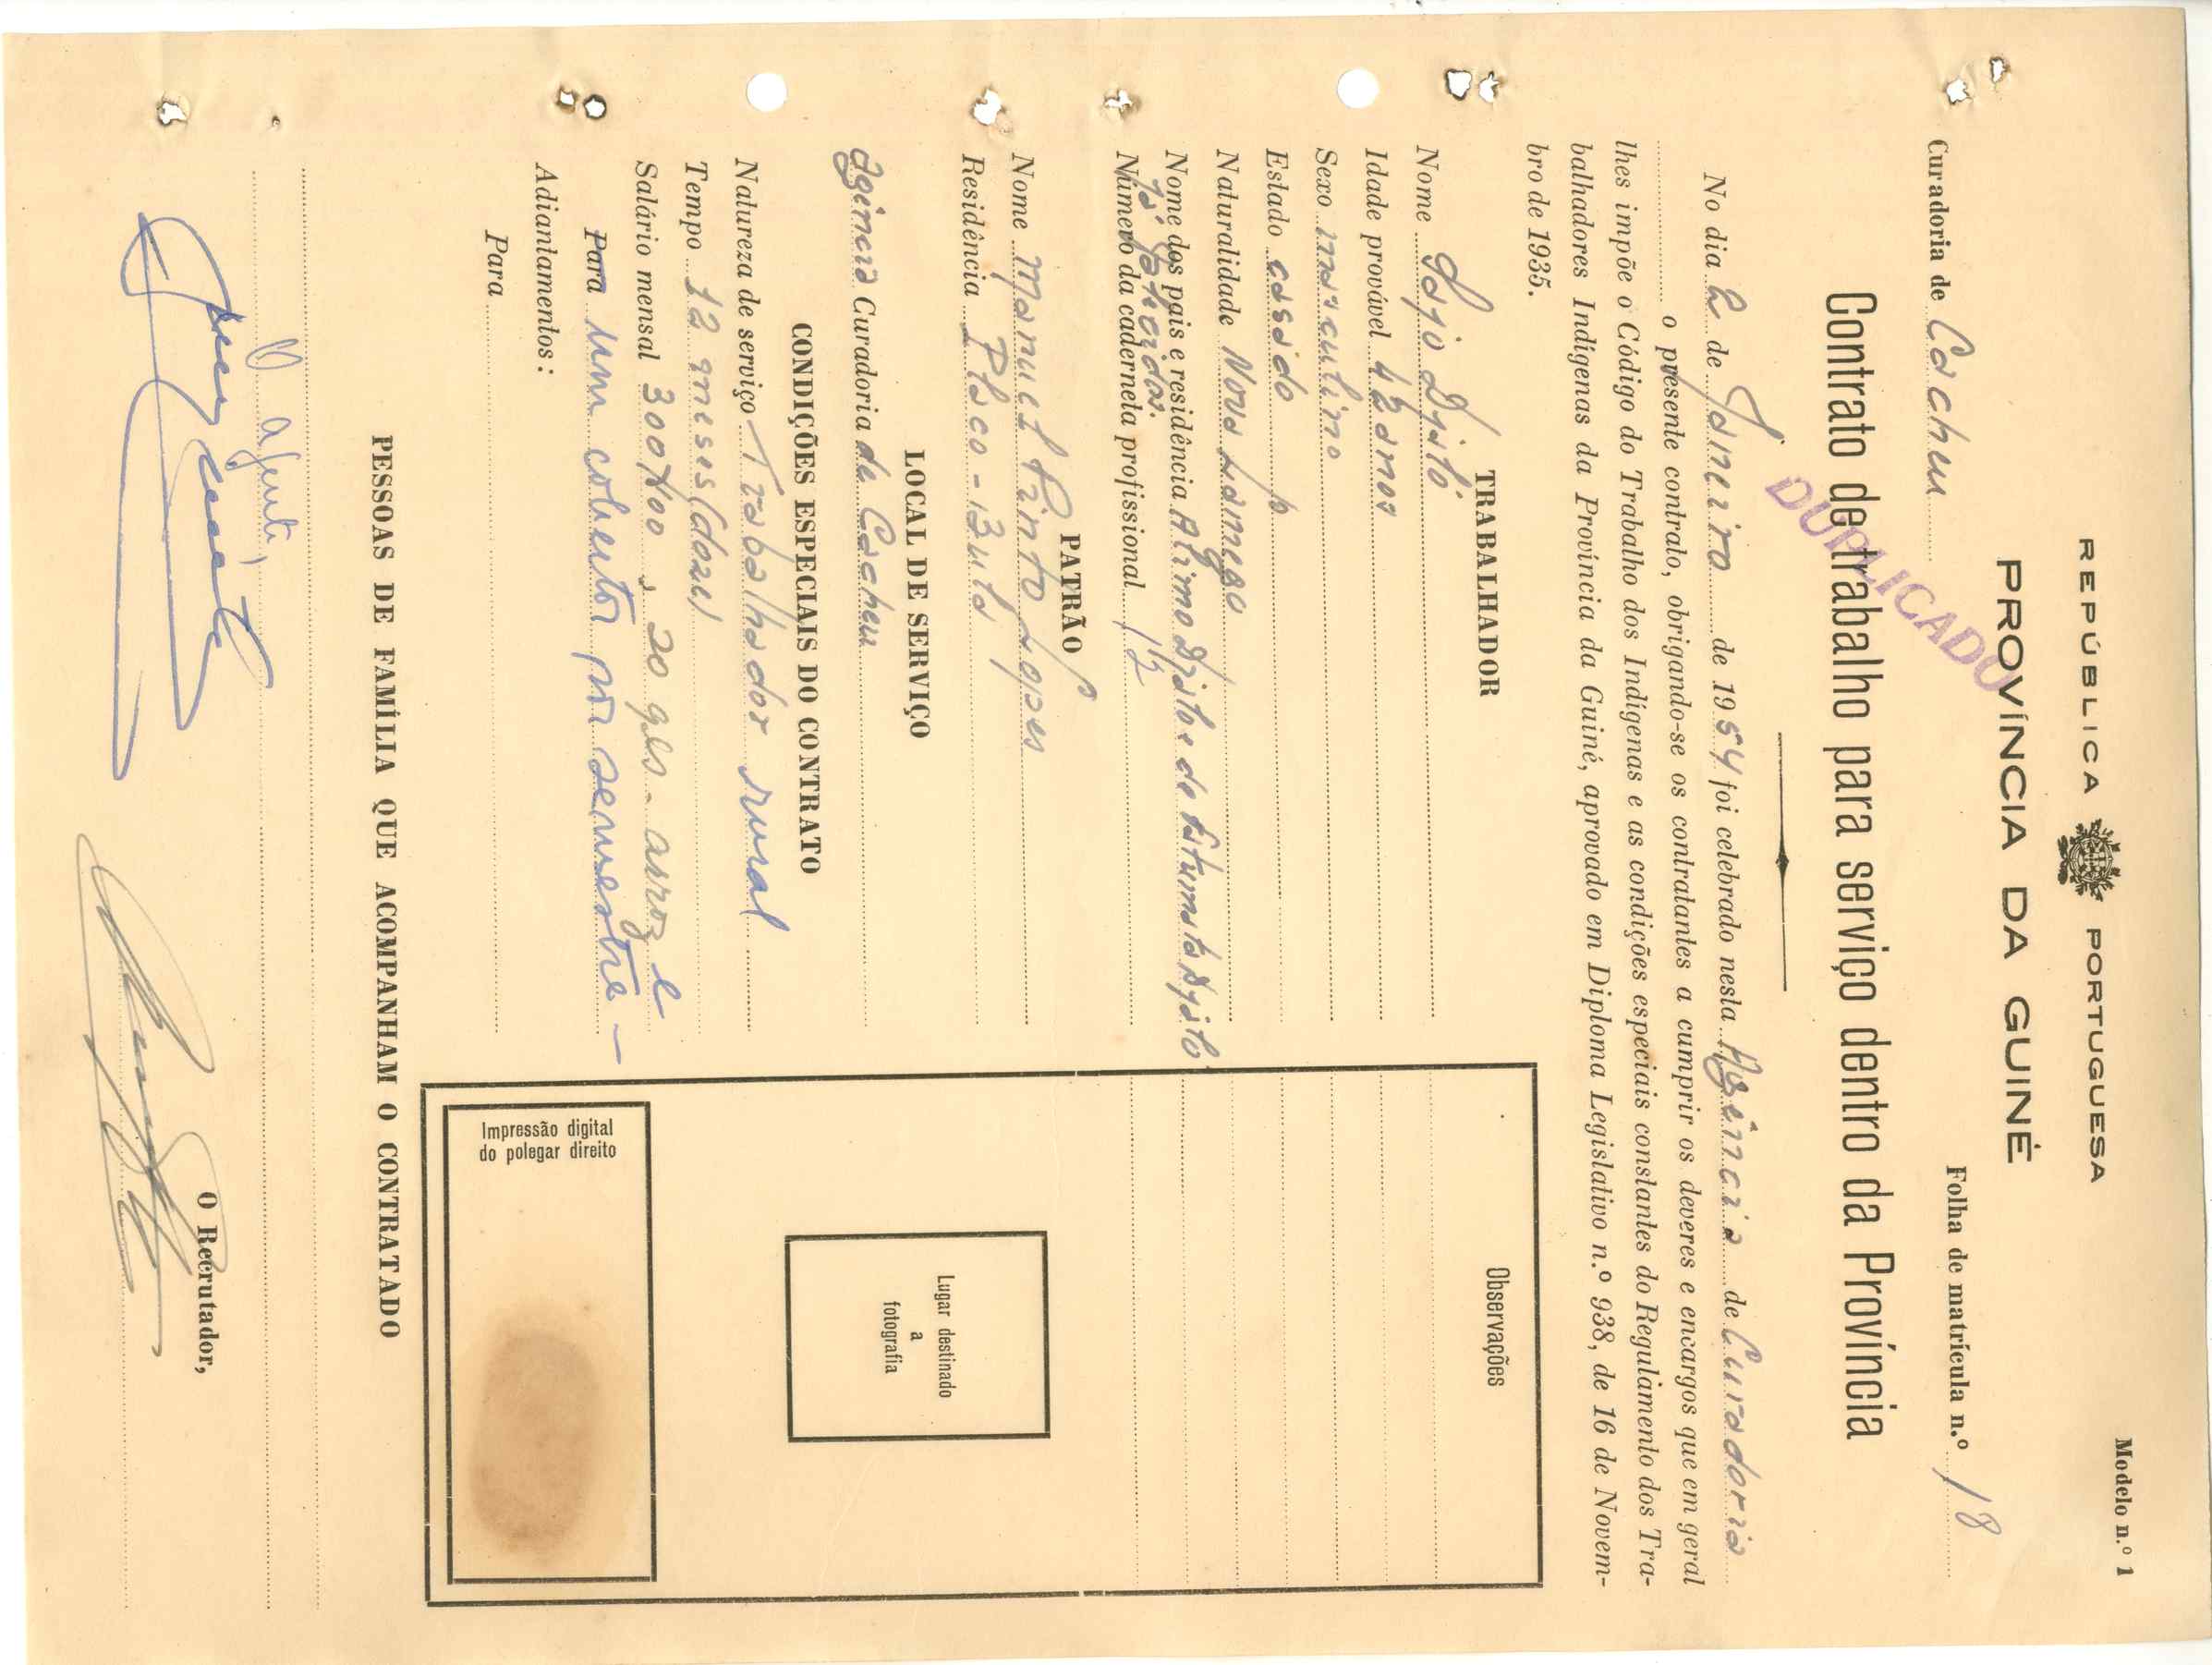 Modelo n.º 1
REPÚBLICA PORTUGUESA
PROVÍNCIA DA GUINÉ
Curadoria de Cacheu Folha de matrícula n.º 18
DUPLICADO
Contrato de trabalho para serviço dentro da Província
No dia 2 de Janeiro de 1954 foi celebrado nesta Agência de Curadoria
o presente contrato, obrigando-se os contratantes a cumprir os deveres e encargos que em geral
lhes impõe o Código do Trabalho dos Indígenas e as condições especiais constantes do Regulamento dos Tra-
balhadores Indígenas da Província da Guiné, aprovado em Diploma Legislativo n.º 938, de 16 de Novem-
bro de 1935.
TRABALHADOR
Nome
Idade provável 42 anos
Sexo masculino
Estado casado
Naturalidade Nova Lamego
Nome dos pais e residência
já falecidos.
Número da caderneta profissional 12
PATRÃO
Nome Manuel Pinto Lopes
Residência Placo - Bula
LOCAL DE SERVIÇO
agência Curadoria de Cacheu
CONDIÇÕES ESPECIAIS DO CONTRATO
Natureza de serviço Trabalhador rural
Tempo 12 meses (doze)
Salário mensal 300$00, 20 qls. arroz e
Para um cobertor por semestre —
Adiantamentos:
Para
Observações
Lugar destinado
a
fotografia
Impressão digital
do polegar direito
PESSOAS DE FAMÍLIA QUE ACOMPANHAM O CONTRATADO
O agente,
O Recrutador,